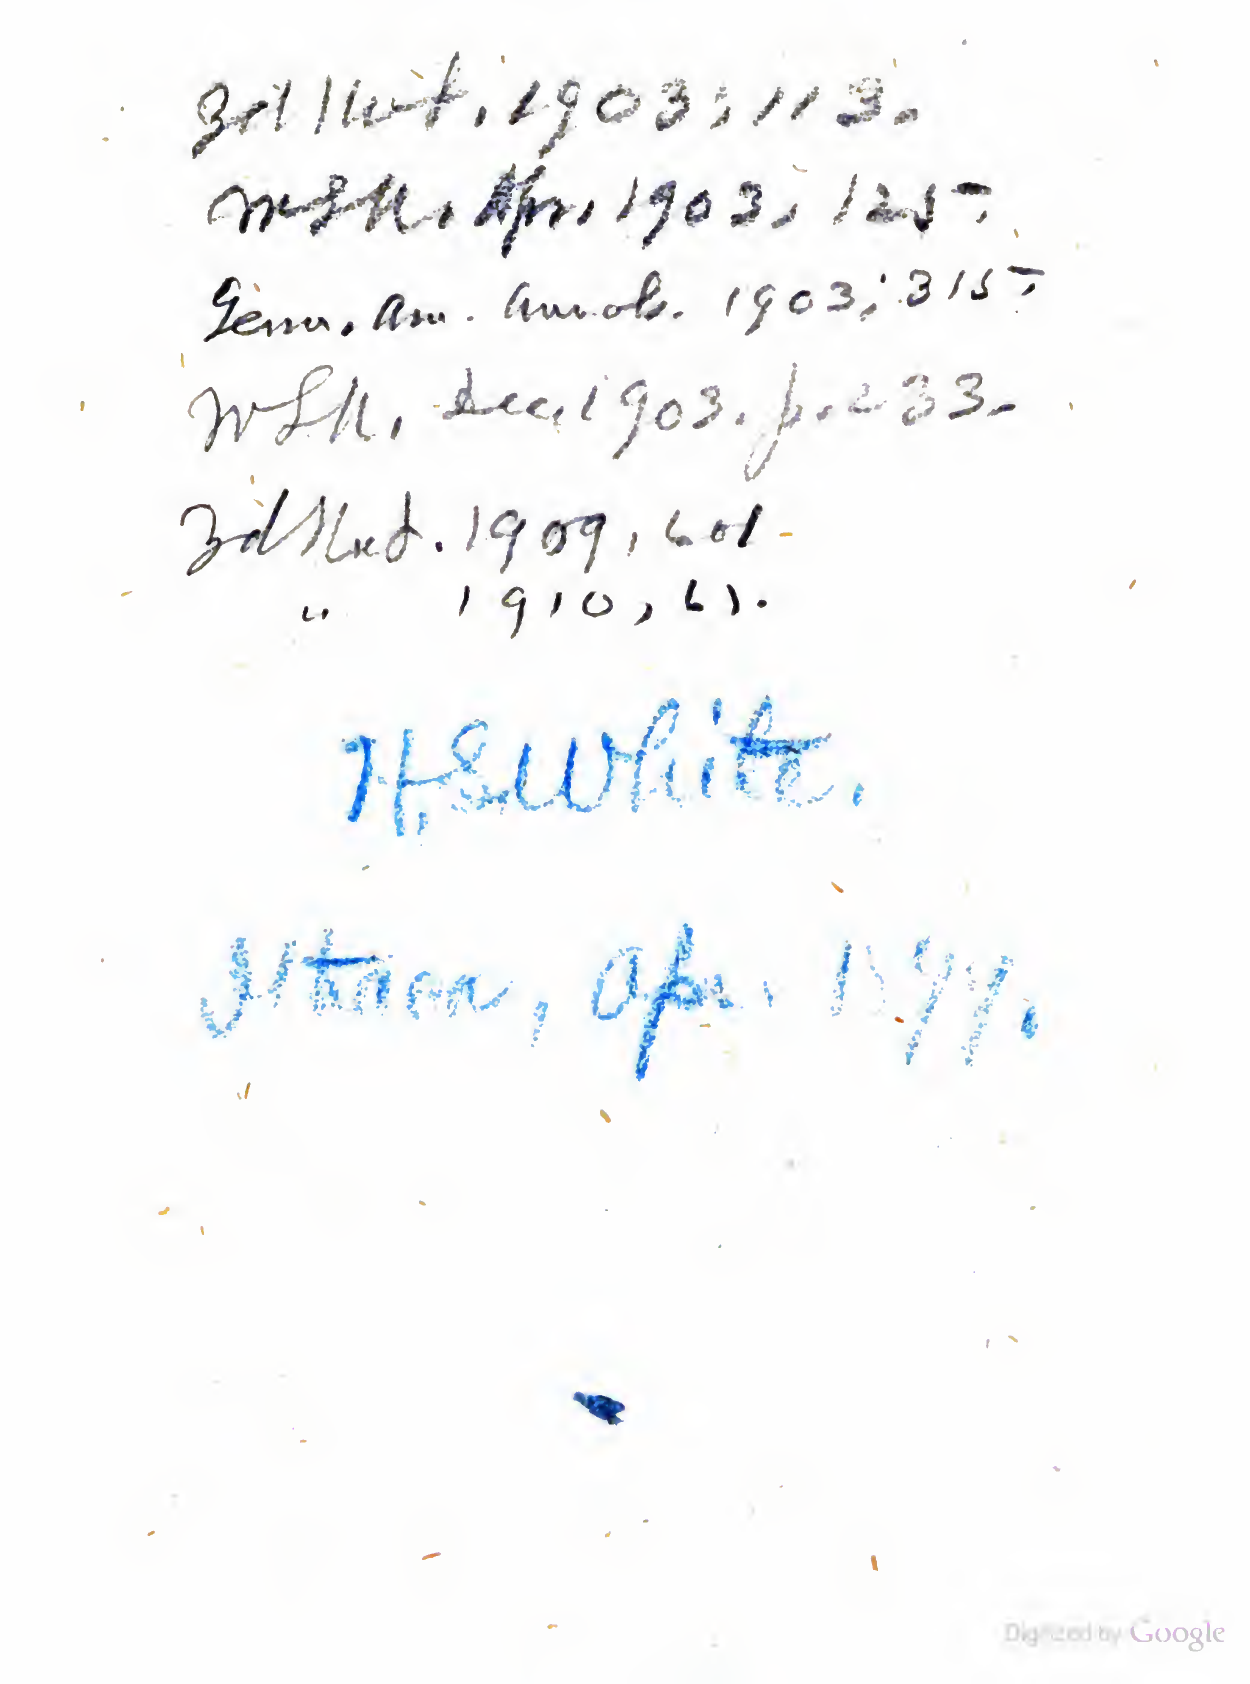 3d Unt. 1903; 113.
MLN. Apr. 1903, 125.
Germ. Am. Annals. 1903; 315.
MLN. Dec, 1903. p. 233.
3d Unt. 1909, 601
" 1910, 61.
H,SWhite.
Ithaca, Apr. 1899.
Digitized by Google